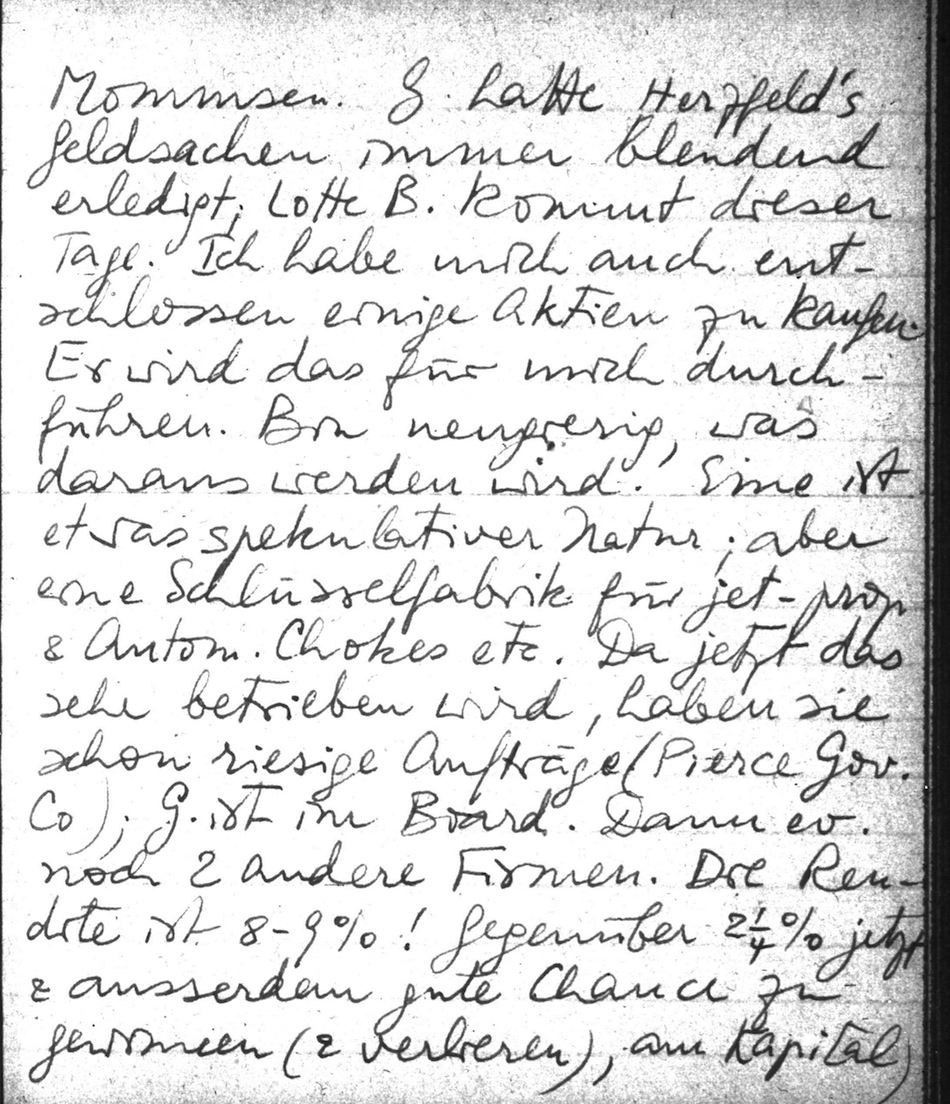 Mommsen. G. hatte Herzfeld's
Geldsachen immer blendend
erledigt; Lotte B. kommt dieser
Tage. Ich habe mich auch ent-
schlossen einige Aktien zu kaufen.
Er wird das für mich durch-
führen. Bin neugierig, was
daraus werden wird. Eine ist
etwas spekulativer Natur; aber
eine Schlüsselfabrik für jet-prop
& Autom. Chokes etc. Da jetzt das
sehr betrieben wird, haben sie
schon riesige Aufträge (Pierce Gov.
Co); G. ist im Board. Dann ev.
noch 2 andere Firmen. Die Ren-
dite ist 8-9%! Gegenüber 2¼% jetzt
& ausserdem gute Chance zu
gewinnen (& verlieren), am Kapital)